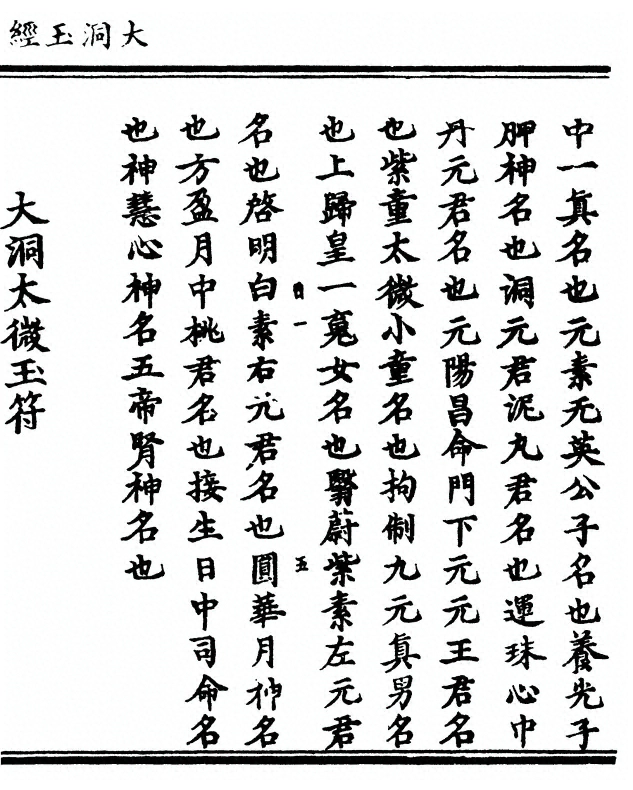 大洞玉經
中一真名也元素无英公子名也養光子
胛神名也洞元君泥丸君名也運珠心中
丹元君名也元陽昌命門下元元王君名
也紫童太微小童名也拘制九元真男名
也上歸皇一女名也翳蔚紫素左元君
一
五
名也啓明白素右元君名也圓華月神名
也方盈月中桃君名也接生日中司命名
也神慧心神名五帝腎神名也
大洞太微玉符